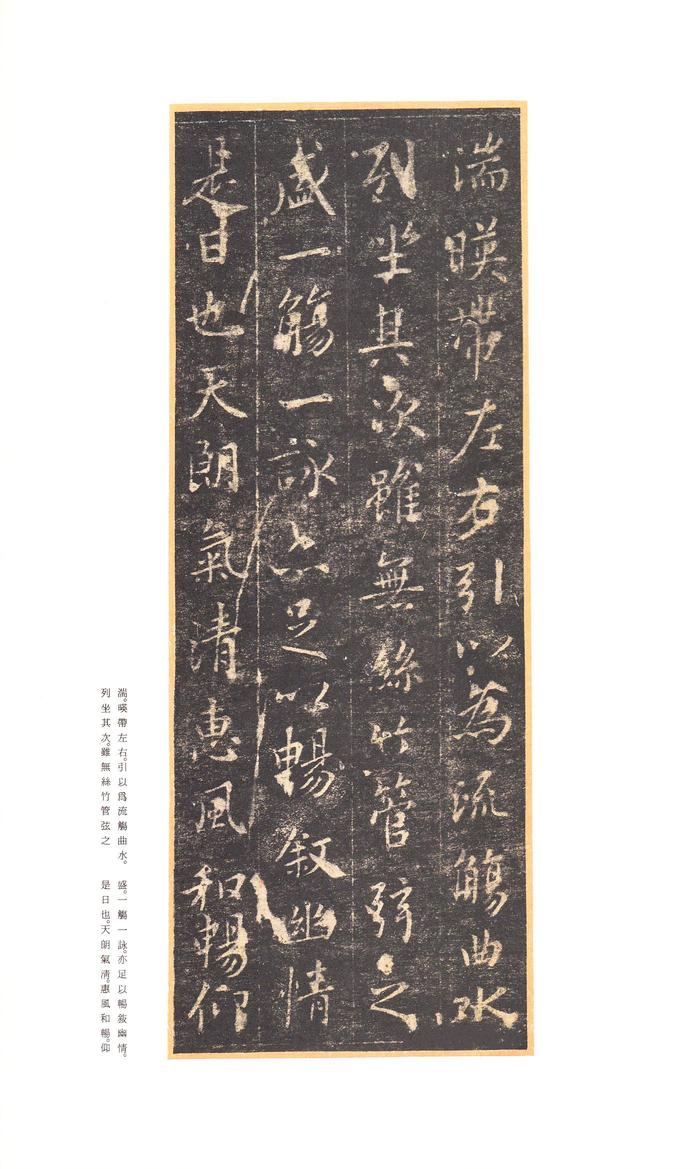 湍暎帶左右引以為流觴曲水
列坐其次雖無絲竹管弦之
盛一觴一詠亦足以暢敘幽情
是日也天朗氣清惠風和暢仰
湍。暎帶左右。引以爲流觴曲水。
列坐其次。雖無絲竹管弦之
盛。一觴一詠。亦足以暢敘幽情。
是日也。天朗氣清。惠風和暢。仰